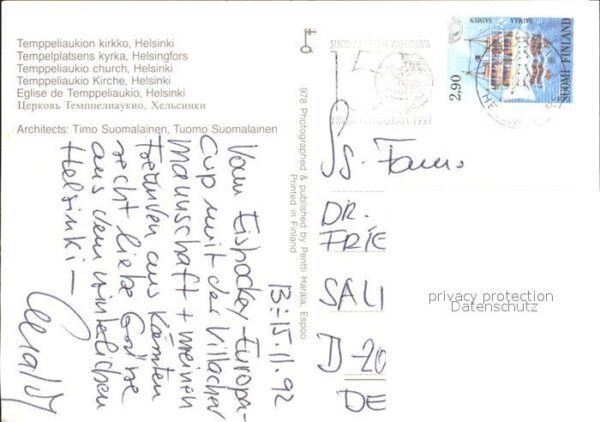 Temppeliaukion kirkko, Helsinki
Tempelplatsens kyrka, Helsingfors
Temppeliaukio church, Helsinki
Temppeliaukio Kirche, Helsinki
Eglise de Temppeliaukio, Helsinki
Церковь Темппелиаукио, Хельсинки
Architects: Timo Suomalainen, Tuomo Suomalainen
13.-15.11.92
Vom Eishockey-Europa-
Cup mit der Villacher
Mannschaft + meinen
aus Kärnten
recht liebe Grüße
aus dem winterlichen
Helsinki —
978 Photographed & published by Pentti Harala, Espoo
Printed in Finland
SAIMAA
SAIMEN
2,90
SUOMI FINLAND
1992
DR.
FRIE
SALI
D-20
DE
privacy protection
Datenschutz